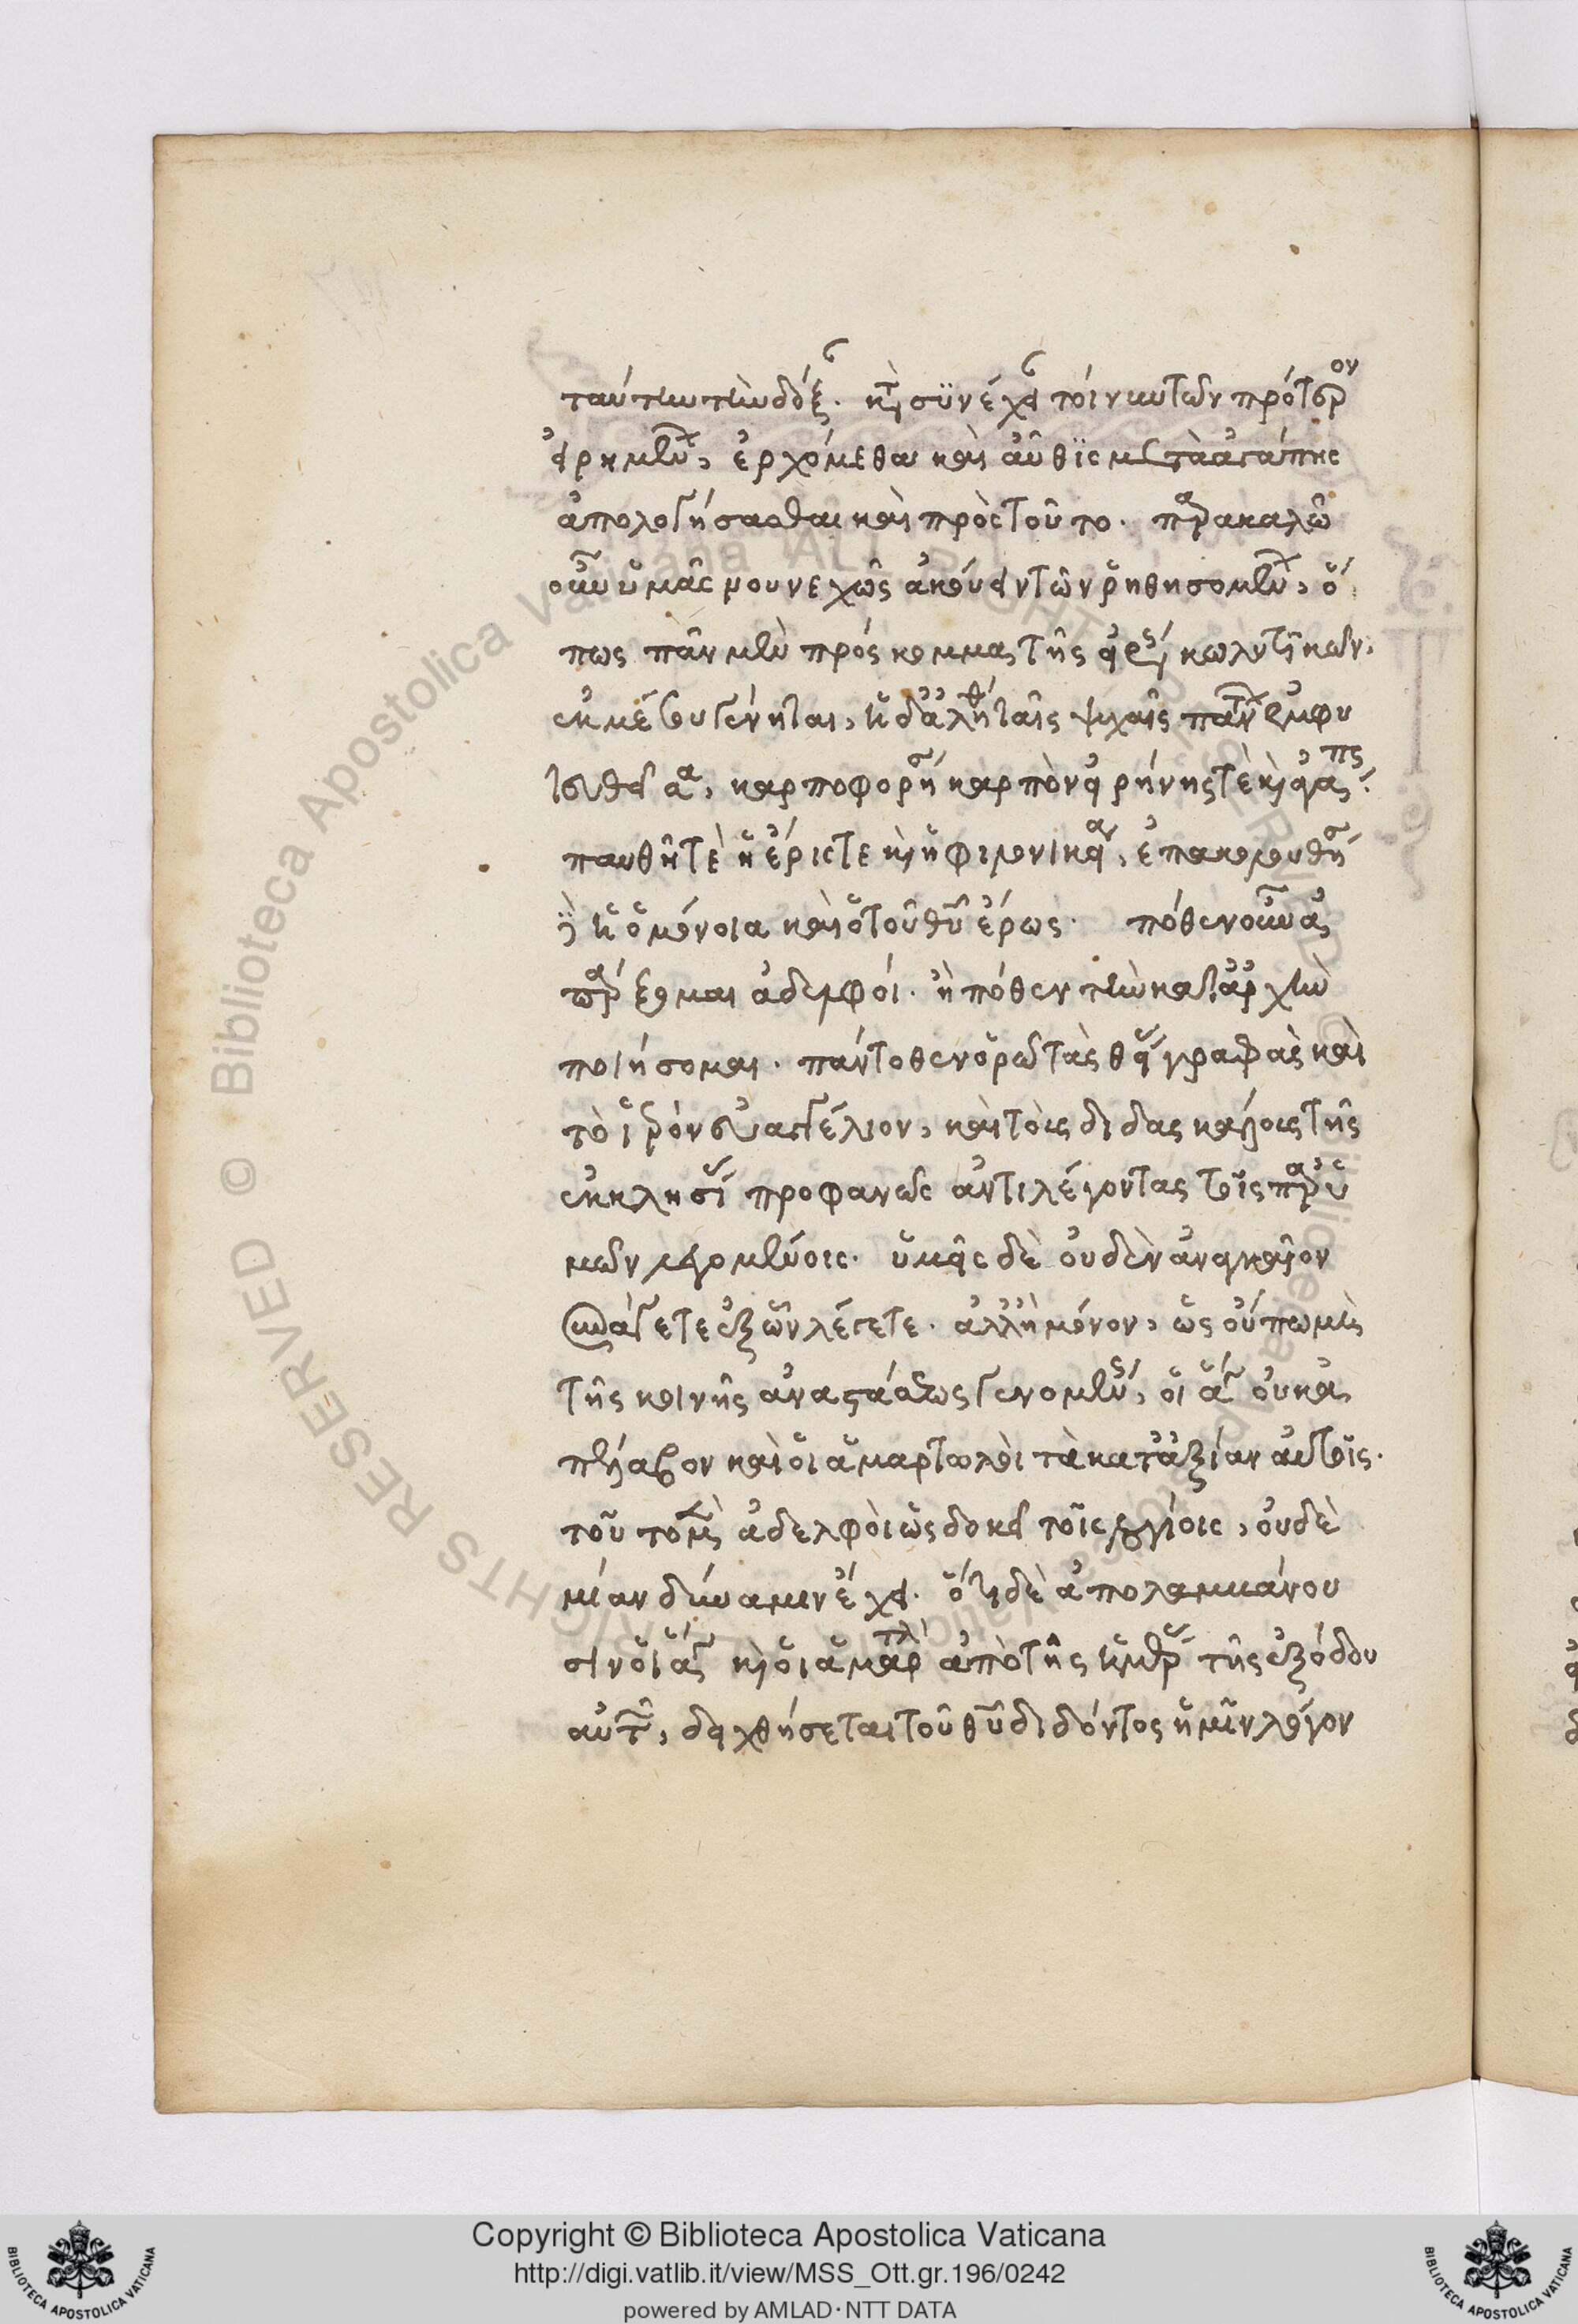 ταύτην τὴν δόξαν. κατὰ συνέχειαν τοίνυν τῶν πρότερον
εἰρημένων, ἐρχόμεθα καὶ αὖθϊς μετὰ ἀγάπης
ἀπολογήσασθαι καὶ πρὸς τοῦτο. παρακαλῶ
οὖν ὑμᾶς συνεχῶς ἀκούειν τῶν ῥηθησομένων, ὅ
πως πᾶν μὲν πρόσκομμα τῆς εἰρήνης κωλυτικὸν,
ἐκ μέσου γένηται, ἡ δ' ἀλήθεια ταῖς ψυχαῖς πάντων ἐμφυ
τευθεῖσα, καρποφορήσῃ καρπὸν εἰρήνης τὲ καὶ ἀγάπης.
παυθῇ τὲ ἡ ἔρις τε καὶ ἡ φιλονικεία, ἐπακολουθήσῃ
δὲ ἡ ὁμόνοια καὶ ὁ τοῦ θῦ ἔρως. πόθεν οὖν ἀ
πάρξομαι ἀδελφοί. ἢ πόθεν τὴν καταρχὴν
ποιήσομαι. πάντοθεν ὁρῶ τὰς θείας γραφὰς καὶ
τὸ ἱερὸν εὐαγγέλιον, καὶ τοὺς διδασκάλους τῆς
ἐκκλησίας προφανῶς ἀντιλέγοντας τοῖς παρ' ὑ
μῶν λεγομένοις. ὑμεῖς δὲ οὐδὲν ἀναγκαῖον
παράγετε ἐξ ὧν λέγετε. ἀλλ' ἢ μόνον, ὡς οὔπω μὲν
τῆς κοινῆς ἀναστάσεως γενομένης, οἱ ἅγιοι οὐκ ἀ
πέλαβον καὶ οἱ ἁμαρτωλοὶ τὰ κατ' ἀξίαν αὐτοῖς.
τοῦτο μὲν ἀδελφοὶ ὡς δοκεῖ τοῖς ἁγίοις, οὐδε
μίαν δύναμιν ἔχει. ὅτι δὲ ἀπολαμβάνου
σιν οἱ ἅγιοι καὶ οἱ ἁμαρτωλοὶ ἀπὸ τῆς ἡμέρας τῆς ἐξόδου
αὐτῶν, δειχθήσεται τοῦ θῦ διδόντος ἡμῖν λόγον
Copyright © Biblioteca Apostolica Vaticana
http://digi.vatlib.it/view/MSS_Ott.gr.196/0242
powered by AMLAD·NTT DATA